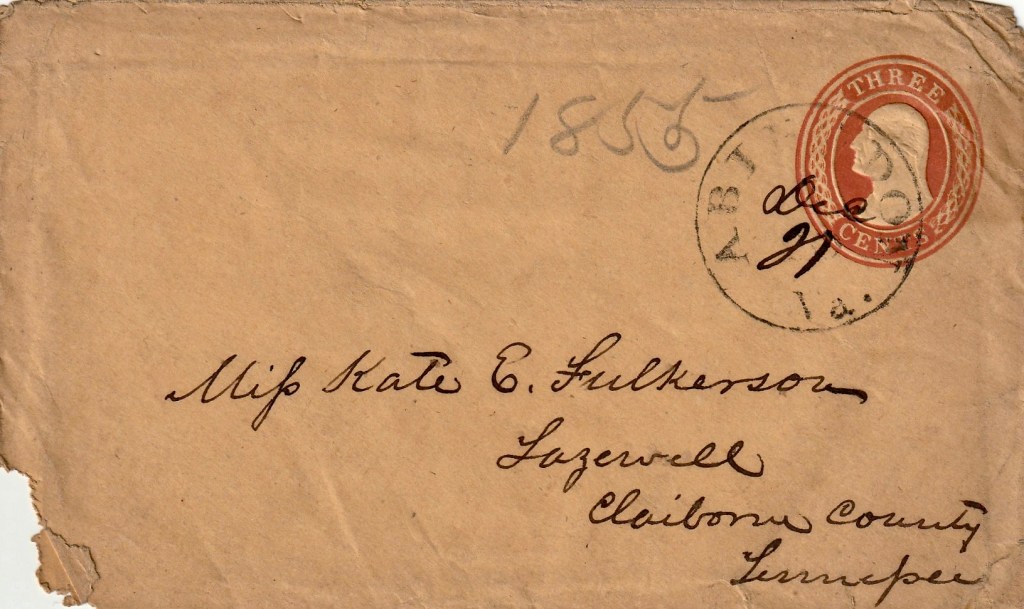 THREE
CENTS
1855
ABINGDON
Va.
Dec
21
Miſs Kate E. Fulkerson
Tazewell
Claiborne County
Tenneſsee